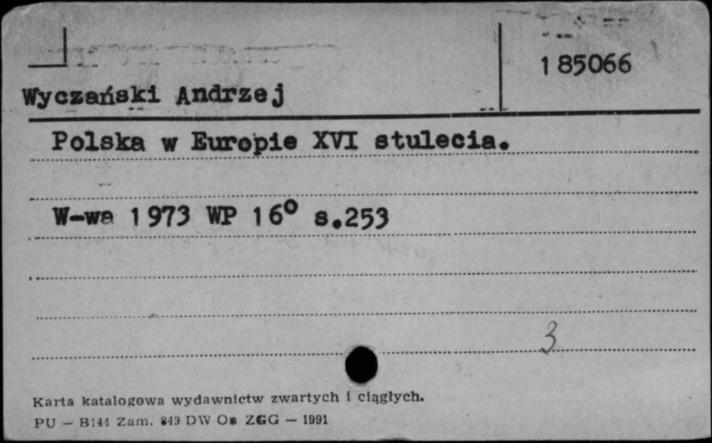 185066
Wyczański Andrzej
Polska w Europie XVI stulecia.
W-wa 1973 WP 16° s.253
3
Karta katalogowa wydawnictw zwartych i ciągłych.
PU — B144 Zam. 849 DW Os ZGG — 1991